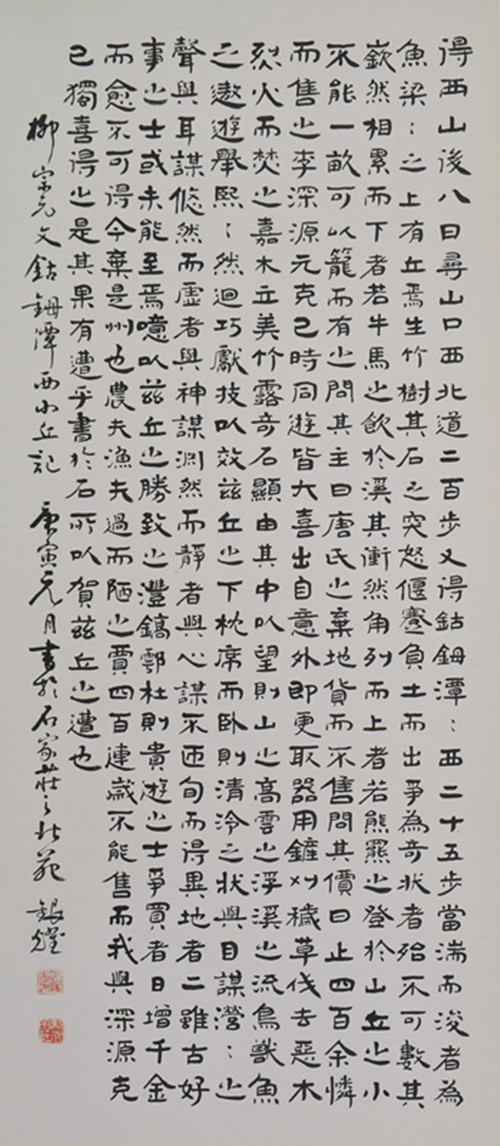 得西山後八日尋山口西北道二百步又得鈷鉧潭：西二十五步當湍而浚者為
魚梁：之上有丘焉生竹樹其石之突怒偃蹇負土而出爭為奇狀者殆不可數其
嶔然相累而下者若牛馬之飲於溪其衝然角列而上者若熊羆之登於山丘之小
不能一畝可以籠而有之問其主曰唐氏之棄地貨而不售問其價曰止四百余憐
而售之李深源元克己時同遊皆大喜出自意外即更取器用鏟刈穢草伐去惡木
烈火而焚之嘉木立美竹露奇石顯由其中以望則山之高雲之浮溪之流鳥獸魚
之遨遊舉熙：然迴巧獻技以效茲丘之下枕席而臥則清泠之狀與目謀瀯：之
聲與耳謀悠然而虛者與神謀淵然而靜者與心謀不匝旬而得異地者二雖古好
事之士或未能至焉噫以茲丘之勝致之灃鎬鄠杜則貴遊之士爭買者日增千金
而愈不可得今棄是州也農夫漁夫過而陋之賈四百連歲不能售而我與深源克
己獨喜得之是其果有遭乎書於石所以賀茲丘之遭也
柳宗元文鈷鉧潭西小丘記 庚寅元月書於石家莊之北苑 銀